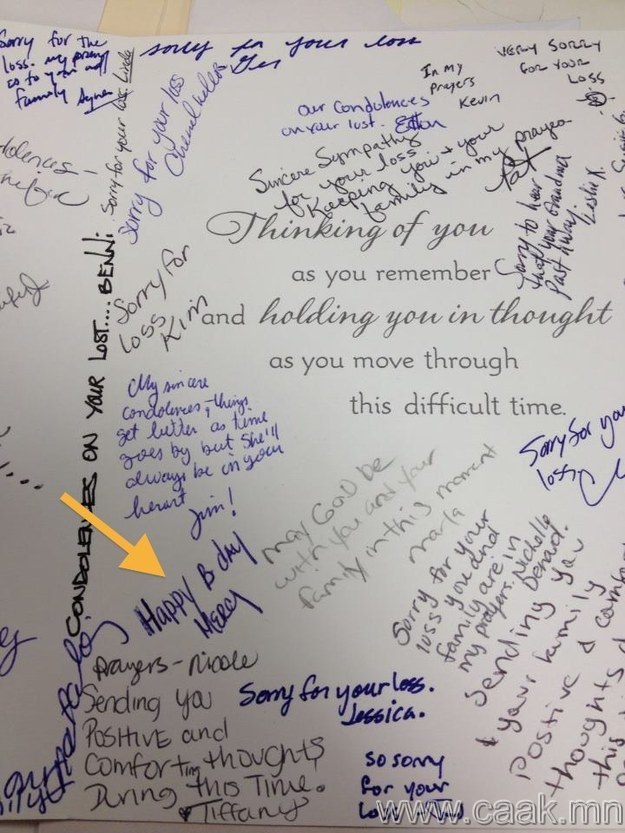 Sorry for the
loss. my prayers
as to you and
family
sorry for your loss
Sorry for your loss. Linda
Sorry for your loss
In my
prayers
Kevin
VERY SORRY
FOR YOUR
LOSS
our condolences
on your lost.
Sincere Sympathy
for your loss.
Keeping you + your
family in my prayers
Pat
Sorry to hear
that your Grandma
Past away.
Thinking of you
as you remember
and holding you in thought
as you move through
this difficult time.
Sorry for
loss
Kim
CONDOLENCES ON YOUR LOST.... BENNI
My sincere
condolences, things
get better as time
goes by but she'll
always be in your
heart
Jim!
Sorry for you
loss
may God be
with you and your
family in this moment
maria
Happy B day
Mercy
Sorry for your
loss you and
family are in
my prayers. Nichelle
Sending you
& your family
Positive & comfo
thoughts d
this
prayers - nicole
Sending you
Positive and
Comforting thoughts
During this Time.
Tiffany
Sorry for your loss.
Jessica.
so sorry
for your
Loss
www.caak.mn